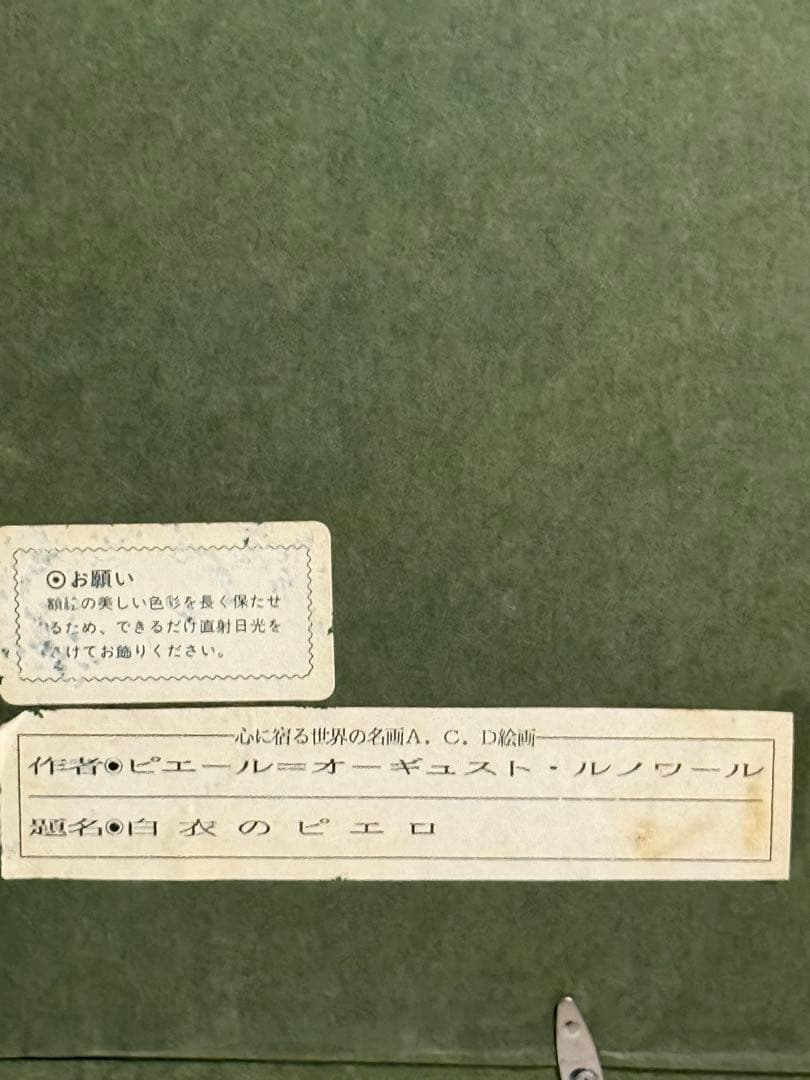 ◉お願い
額絵の美しい色彩を長く保たせ
るため、できるだけ直射日光を
さけてお飾りください。
心に宿る世界の名画A.C.D絵画
作者◉ピエール=オーギュスト・ルノワール
題名◉白衣のピエロ